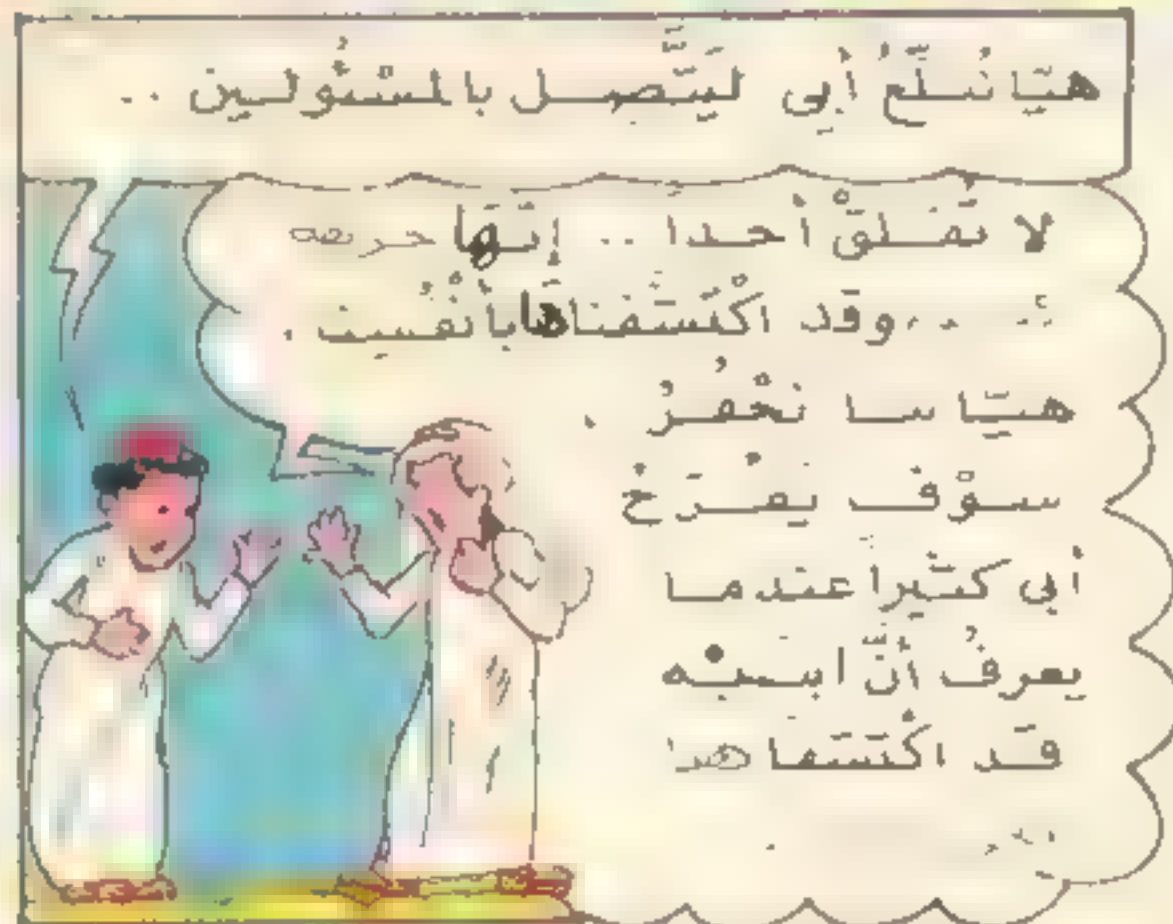 هيّا نُبلّغُ أبِى ليَتَّصِل بالمسْئُولين ..
لا تُقلِقْ أحداً .. إنّها
.. وقد اكْتَشَفناها بأنْفُسِنا .
هيّا بنا نَحْفُرُ .
سوْف يفْرَحُ
أبى كثيراً عندما
يعرفُ أنّ ابنيْه
قد اكْتشفا هذا